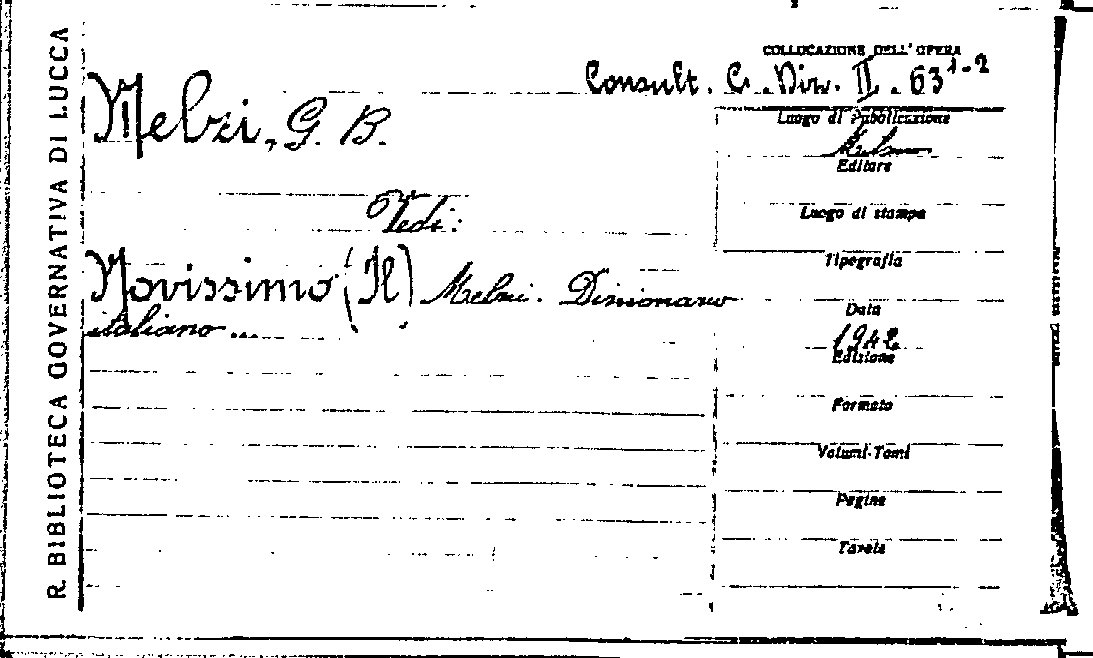 R. BIBLIOTECA GOVERNATIVA DI LUCCA
COLLOCAZIONE DELL'OPERA
Consult. C. Div. II. 63 1-2
Melzi, G. B.
Vedi:
Novissimo (Il) Melzi. Dizionario
italiano ...
Luogo di Pubblicazione
Milano
Editore
Luogo di stampa
Tipografia
Data
1942
Edizione
Formato
Volumi-Tomi
Pagine
Tavole